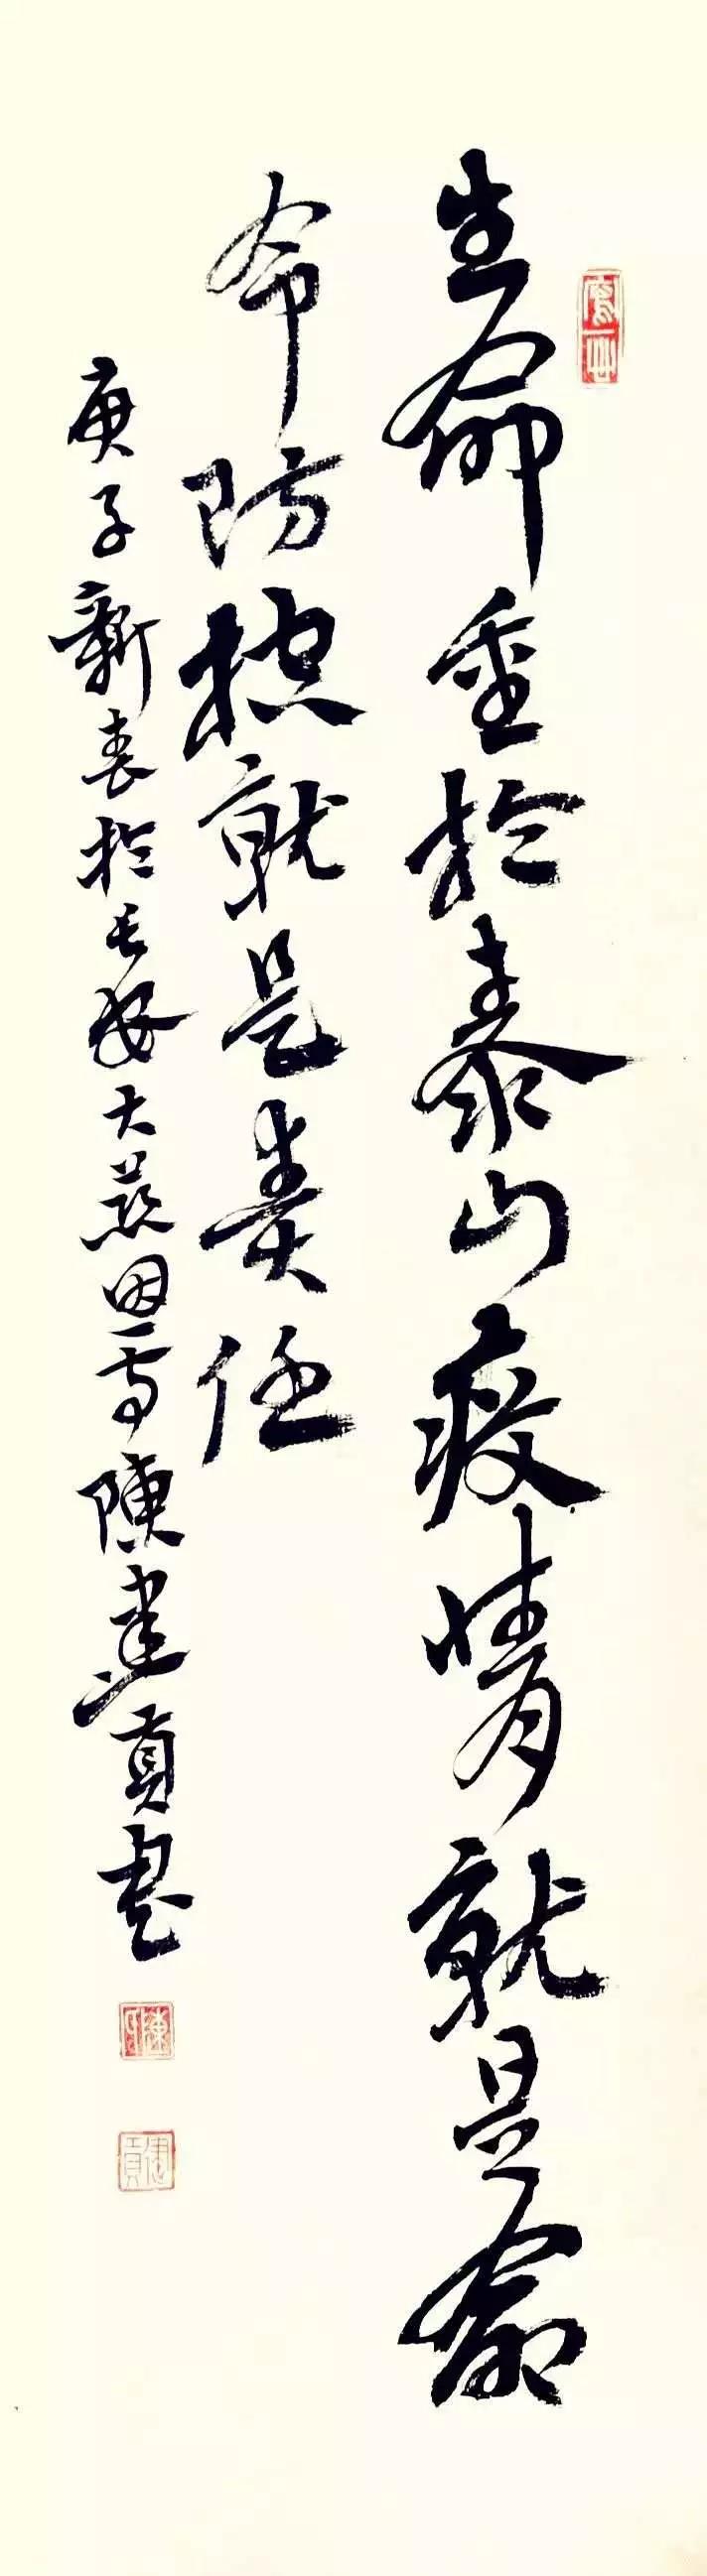 生命重於泰山疫情就是命
令防控就是責任
庚子新春於長安大慈恩寺陳建貢書
建貢